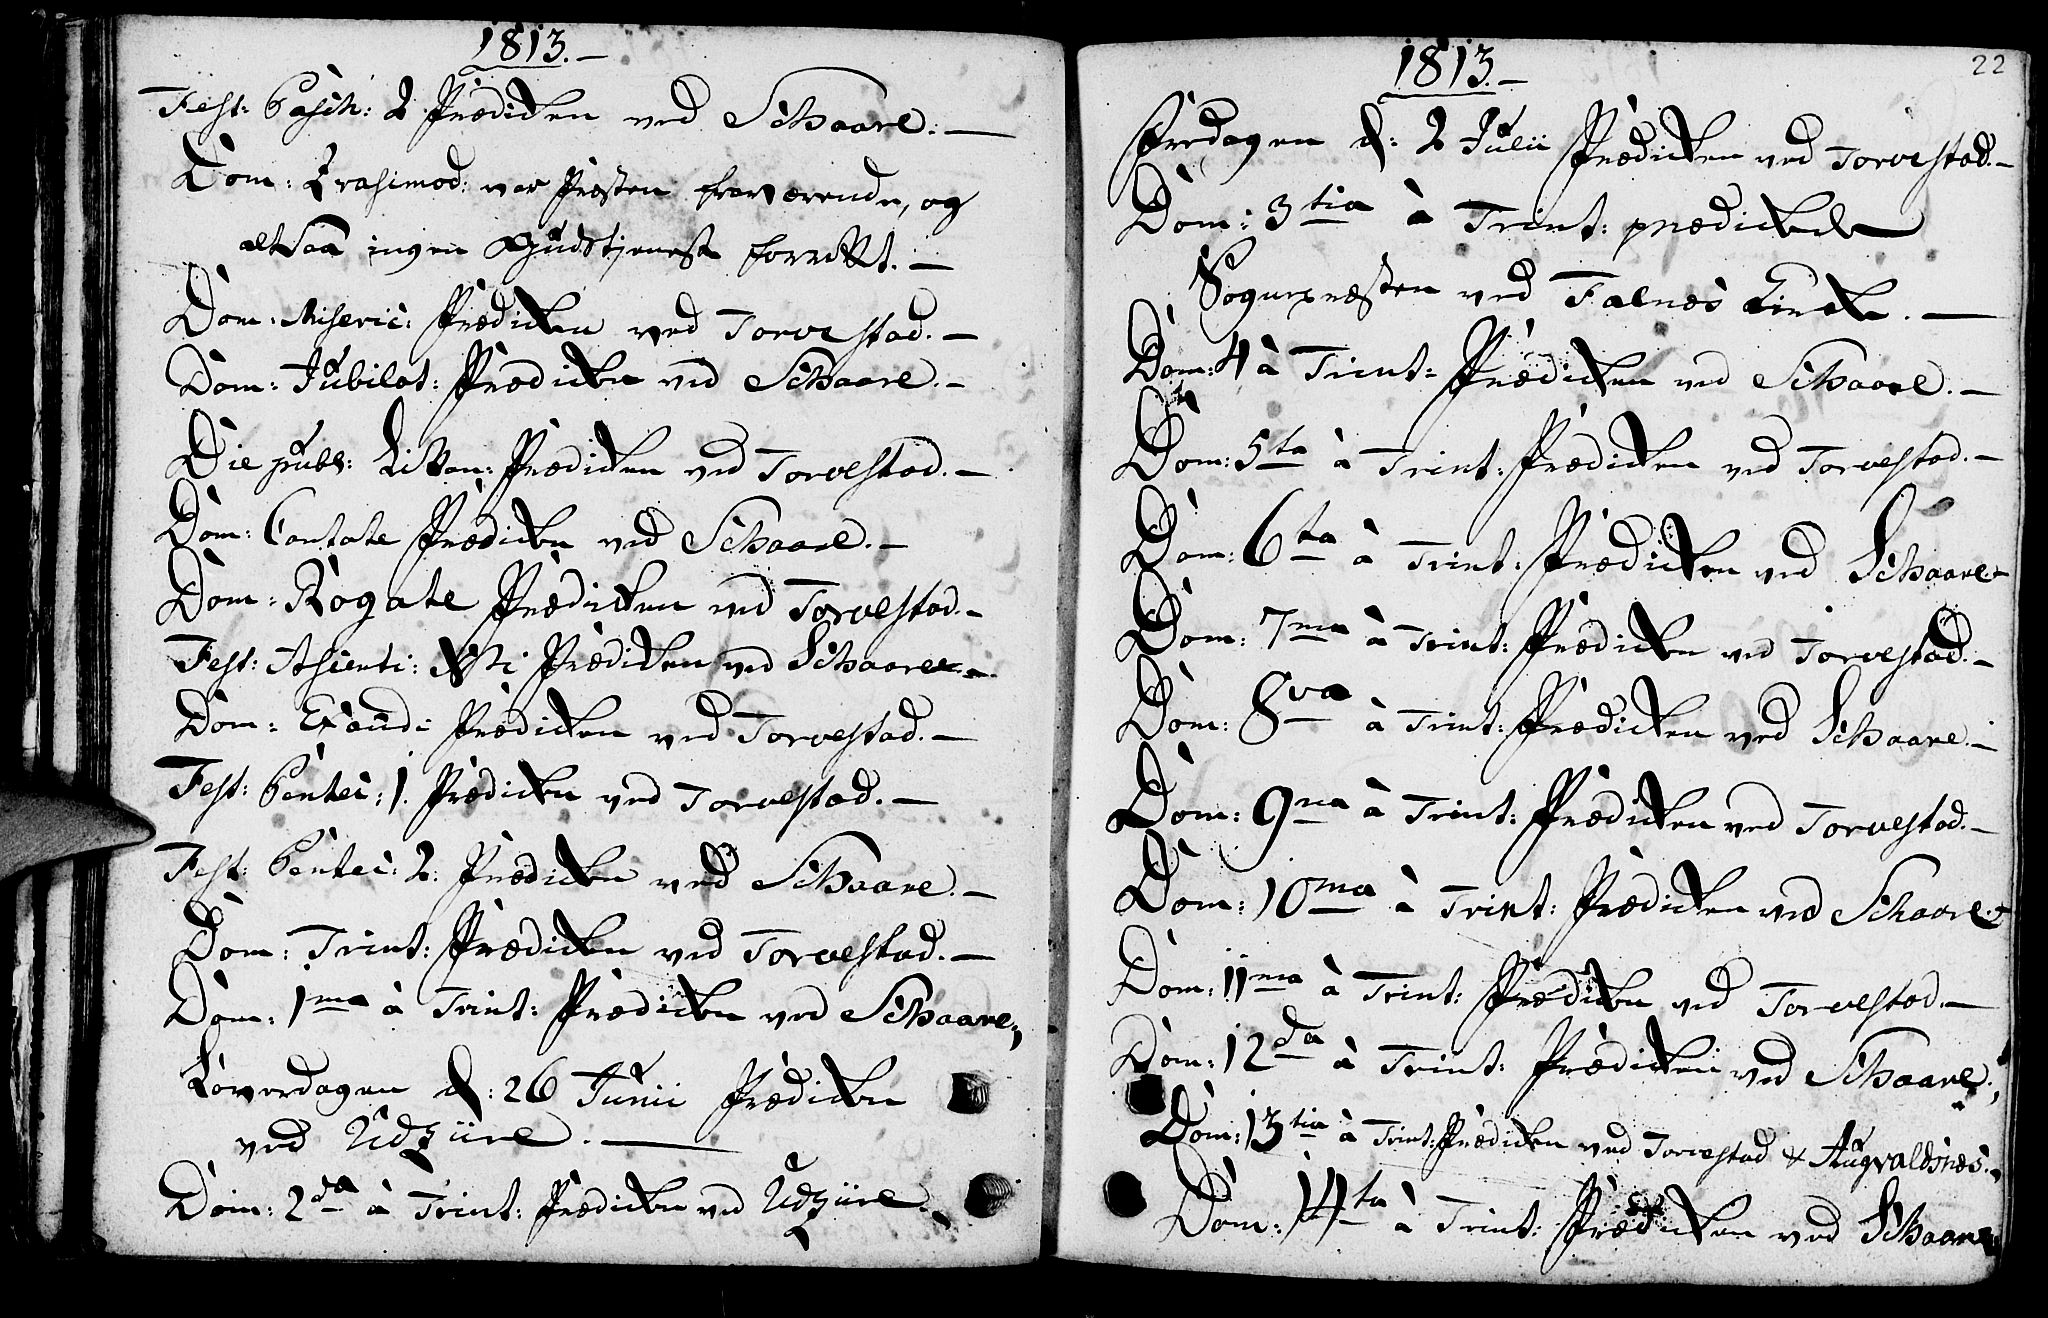 1813.–
Fest: Pasch: 2. Prædicken ved Schaare:–
Dom: Qvasimod: var Præsten fraværende, og
altsaa ingen Gudstjeneste forrettet.–
Dom: Miseric: Prædicken ved Torvestad.–
Dom: Jubilat: Prædicken ved Schaare.–
Die publ: Litan: Prædicken ved Torvestad.–
Dom: Cantate Prædicken ved Schaare.–
Dom: Rogate Prædicken ved Torvestad.–
Fest: Ascenti: Xsti Prædicken ved Schaare.–
Dom: Exaudi Prædicken ved Torvestad.–
Fest: Pentec: 1. Prædicken ved Torvestad.–
Fest: Pentec: 2. Prædicken ved Schaare.–
Dom: Trint: Prædicken ved Torvestad.–
Dom: 1ma à Trint: Prædicken ved Schaare.–
Løverdagen d: 26 Junii Prædicken
ved Udziire.–
Dom: 2da à Trint: Prædicken ved Udziire.–
1813.–
22
Fredagen d: 2 Julii Prædicken ved Torvestad.–
Dom: 3tia à Trint: prædickede
Sognepræsten ved Falnes Kirke.–
Dom: 4ta à Trint: Prædicken ved Schaare.–
Dom: 5ta à Trint: Prædicken ved Torvestad.–
Dom: 6ta à Trint: Prædicken ved Schaare.–
Dom: 7ma à Trint: Prædicken ved Torvestad.–
Dom: 8va à Trint: Prædicken ved Schaare.–
Dom: 9na à Trint: Prædicken ved Torvestad.–
Dom: 10ma à Trint: Prædicken ved Schaare.–
Dom: 11ma à Trint: Prædicken ved Torvestad.–
Dom: 12da à Trint: Prædicken ved Schaare.–
Dom: 13tia à Trint: Prædicken ved Torvestad & Augvaldsnæs.–
Dom: 14ta à Trint: Prædicken ved Schaare